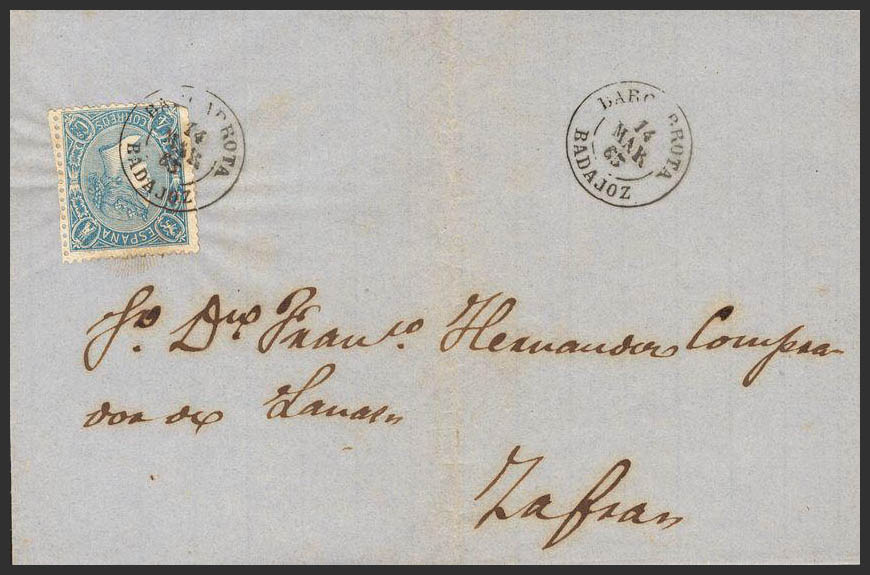 BARCARROTA
14
MAR
65
BADAJOZ
CORREOS
ESPAÑA
BARCARROTA
14
MAR
65
BADAJOZ
Sr. Dn Franco. Hernandes Compra-
dor de Lanas
Zafra